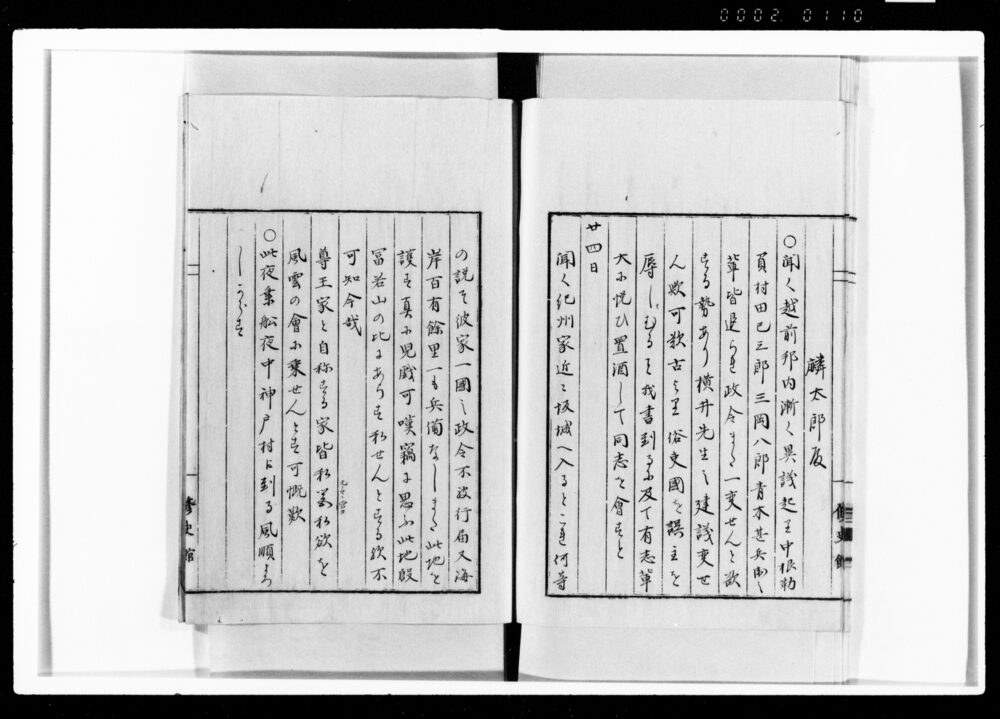 0002 0110
麟太郎殿
〇聞く越前邦内漸く異議起里中根勒
負村田巳三郎三岡八郎青木甚兵衛之
輩皆退られ政令また一変せんと欲
する勢あり横井先生之建議変せ
ん歟可歎古より俗吏國を誤主を
辱しむると我書到るに及て有志輩
大に悦ひ置酒して同志を會すと
廿四日
聞く紀州家近々坂城へ入るとこれ何等
修史館
の説そ彼家一國之政令不被行届又海
岸百有餘里一も兵備なしまた此地を
護す真に児戯可嘆竊に思ふ此地殷
冨若山の比にあらす私せんとする欤不
可知今哉
尊王家と自称する家皆私営私欲を
風雲の會に乗せんとす可慨歎
〇此夜乗舩夜中神戸村に到る風順よろ
しからす
修史館